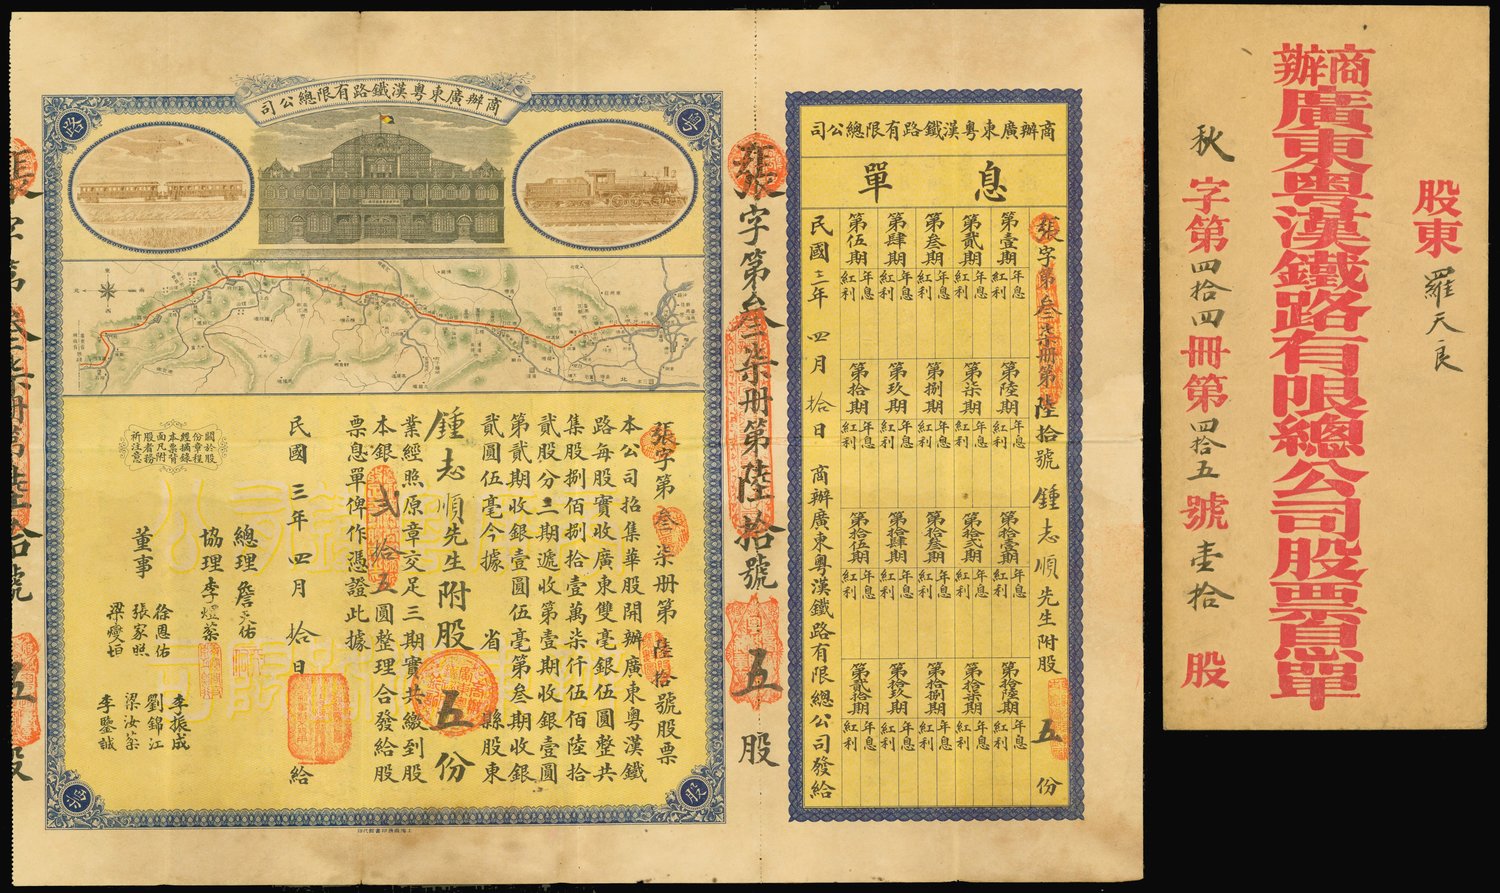 商辦廣東粵漢鐵路有限總公司
粵
路
股
票
張字第叁柒册第陸拾號股票
本公司招集華股開辦廣東粵漢鐵
路每股實收廣東雙毫銀伍圓整共
集股捌佰捌拾壹萬柒仟伍佰陸拾
貳股分三期遞收第壹期收銀壹圓
第貳期收銀壹圓伍毫第叁期收銀
貳圓伍毫今據 省 縣股東
鍾志順先生附股五份
業經照原章交足三期實共繳到股
本銀弐拾五圓整理合發給股
票息單俾作憑證此據
民國三年四月拾日給
關於股
份章程
經摘錄
本票背
面凡附
股者務
祈注意
總理詹天佑
協理李煜棻
董事
徐恩佑
張家照
梁燮垣
李振成
劉錦江
梁汝棻
李鑒誠
張字第叁柒册第陸拾號五股
商辦廣東粵漢鐵路有限總公司
息單
張字第叁柒册第陸拾號鍾志順先生附股五份
第壹期 年息 紅利
第貳期 年息 紅利
第叁期 年息 紅利
第肆期 年息 紅利
第伍期 年息 紅利
第陸期 年息 紅利
第柒期 年息 紅利
第捌期 年息 紅利
第玖期 年息 紅利
第拾期 年息 紅利
第拾壹期 年息 紅利
第拾弍期 年息 紅利
第拾叁期 年息 紅利
第拾肆期 年息 紅利
第拾伍期 年息 紅利
第拾陸期 年息 紅利
第拾柒期 年息 紅利
第拾捌期 年息 紅利
第拾玖期 年息 紅利
第貳拾期 年息 紅利
民國三年四月拾日商辦廣東粵漢鐵路有限總公司發給
股東羅天良
商辦廣東粵漢鐵路有限總公司股票息單
秋字第四拾四冊第四拾五號壹拾股